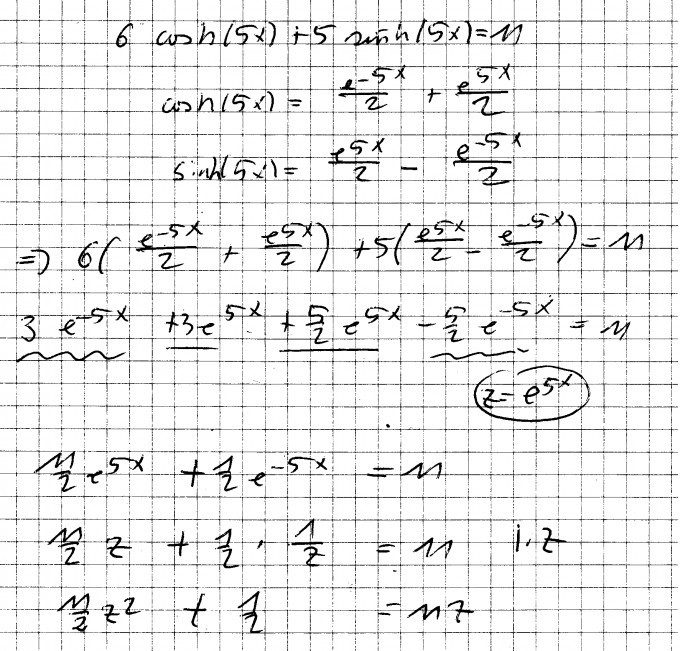 6 cosh(5x) + 5 sinh(5x) = 11
cosh(5x) = e^-5x/2 + e^5x/2
sinh(5x) = e^5x/2 - e^-5x/2
=> 6(e^-5x/2 + e^5x/2) + 5(e^5x/2 - e^-5x/2) = 11
3 e^-5x + 3e^5x + 5/2 e^5x - 5/2 e^-5x = 11
z = e^5x
11/2 e^5x + 1/2 e^-5x = 11
11/2 z + 1/2 · 1/z = 11 |·z
11/2 z² + 1/2 = 11z